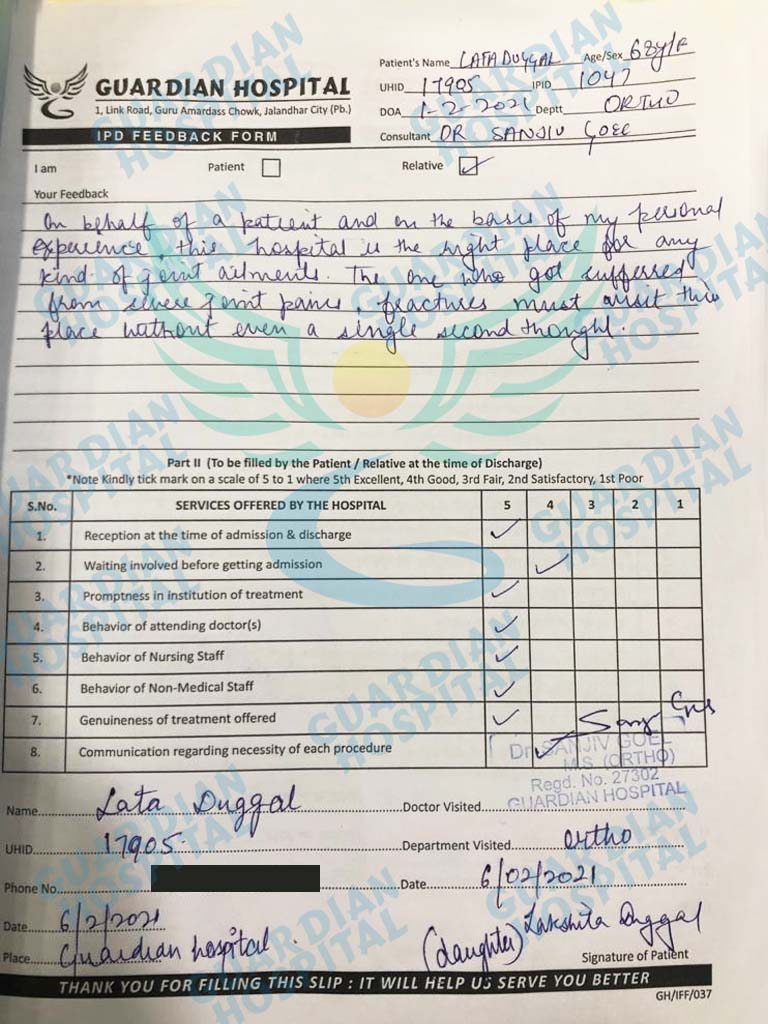 Patient's Name LATA DUGGAL Age/Sex 68y/F
UHID 17905 IPID 1047
DOA 1-2-2021 Deptt ORTHO
Consultant DR SANJIV GOEL
GUARDIAN HOSPITAL
1, Link Road, Guru Amardass Chowk, Jalandhar City (Pb.)
IPD FEEDBACK FORM
I am Patient Relative ✓
Your Feedback
On behalf of a patient and on the basis of my personal
experience, this hospital is the right place for any
kind of joint ailments. The one who got sufferred
from severe joint pains, fractures must visit this
place without even a single second thought.
Part II (To be filled by the Patient / Relative at the time of Discharge)
*Note Kindly tick mark on a scale of 5 to 1 where 5th Excellent, 4th Good, 3rd Fair, 2nd Satisfactory, 1st Poor
S.No. SERVICES OFFERED BY THE HOSPITAL 5 4 3 2 1
1. Reception at the time of admission & discharge ✓
2. Waiting involved before getting admission ✓
3. Promptness in institution of treatment ✓
4. Behavior of attending doctor(s) ✓
5. Behavior of Nursing Staff ✓
6. Behavior of Non-Medical Staff ✓
7. Genuineness of treatment offered ✓
8. Communication regarding necessity of each procedure ✓
Dr. SANJIV GOEL
M.S. (ORTHO)
Regd. No. 27302
GUARDIAN HOSPITAL
Name Lata Duggal Doctor Visited
UHID 17905 Department Visited Ortho
Phone No. Date 6/02/2021
Date 6/2/2021
Place Guardian hospital (daughter) Lakshita Duggal
Signature of Patient
THANK YOU FOR FILLING THIS SLIP : IT WILL HELP US SERVE YOU BETTER
GH/IFF/037